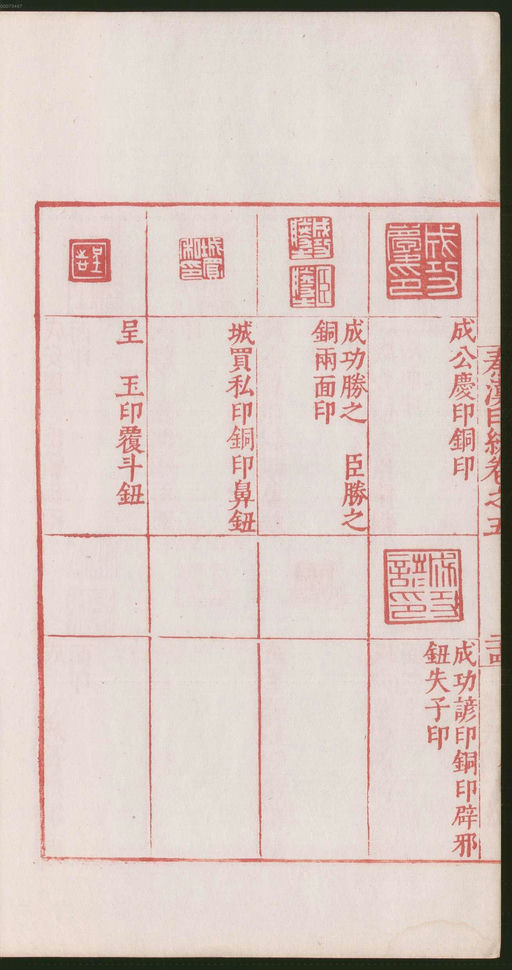 秦漢印統卷之五
二四
成公慶印銅印
成功諺印銅印辟邪
鈕失子印
成功勝之 臣勝之
銅兩面印
城買私印銅印鼻鈕
呈 玉印覆斗鈕